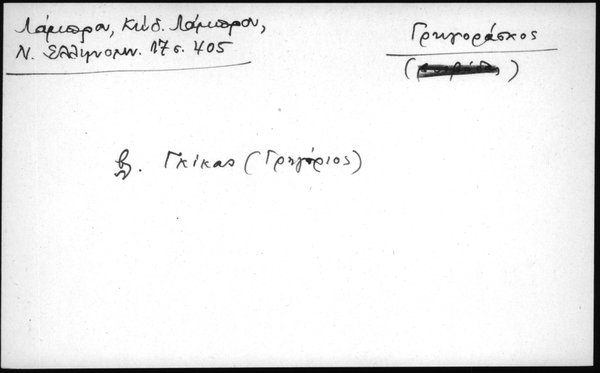 Λάμπρου, Κώδ. Λάμπρου,
Ν. Ελληνομν. 17 σ. 405
Γρηγοράσκος
βλ. Γκίκας (Γρηγόριος)